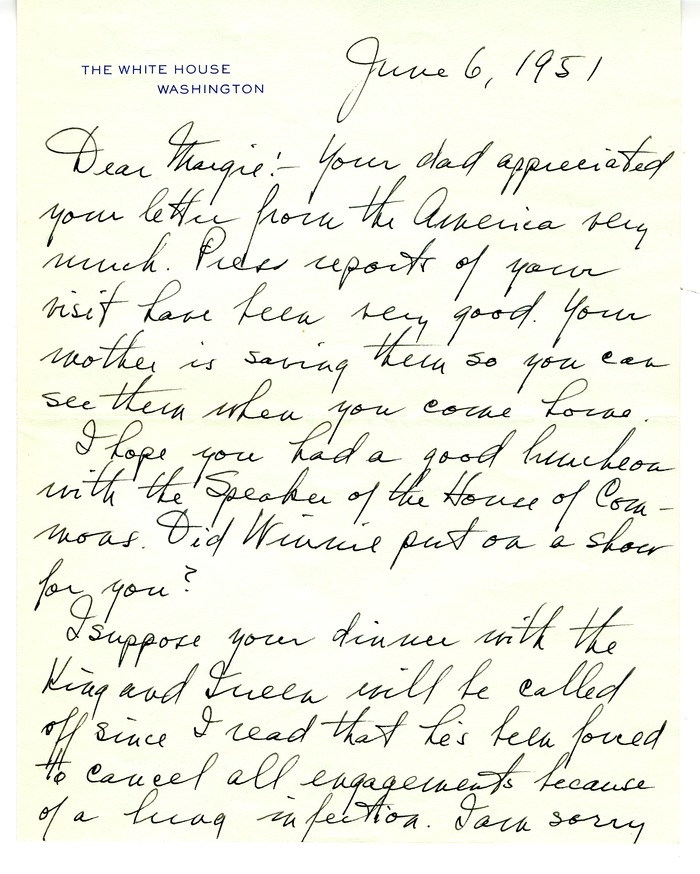 THE WHITE HOUSE
WASHINGTON
June 6, 1951
Dear Margie:- Your dad appreciated
your letter from the America very
much. Press reports of your
visit have been very good. Your
mother is saving them so you can
see them when you come home.
I hope you had a good luncheon
with the Speaker of the House of Com-
mons. Did Winnie put on a show
for you?
I suppose your dinner with the
King and Queen will be called
off since I read that he's been forced
to cancel all engagements because
of a lung infection. I am sorry